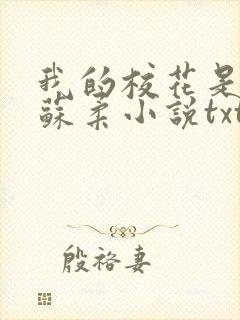 我的校花是
蘇柔小說txt
殷裕妻